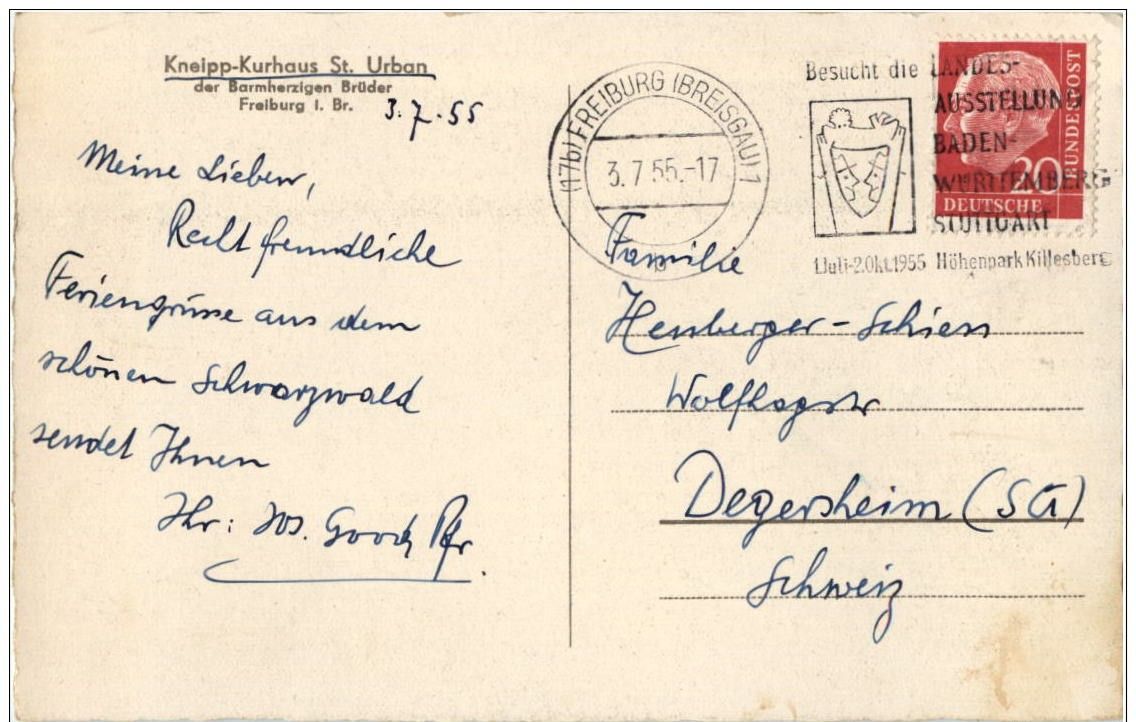 Kneipp-Kurhaus St. Urban
der Barmherzigen Brüder
Freiburg i. Br.
3.7.55
Meine Lieben,
Recht freundliche
Feriengrüsse aus dem
schönen Schwarzwald
sendet Ihnen
Ihr: Jos. Good, Pfr.
(17b) FREIBURG (BREISGAU) 1
3.7.55.-17
b
Besucht die LANDES-
AUSSTELLUNG
BADEN-
WÜRTTEMBERG
STUTTGART
1.Juli-2.Okt.1955 Höhenpark Killesberg
20
DEUTSCHE
BUNDESPOST
Familie
Heuberger-Schiess
Wolfhagstr
Degersheim (SG)
Schweiz